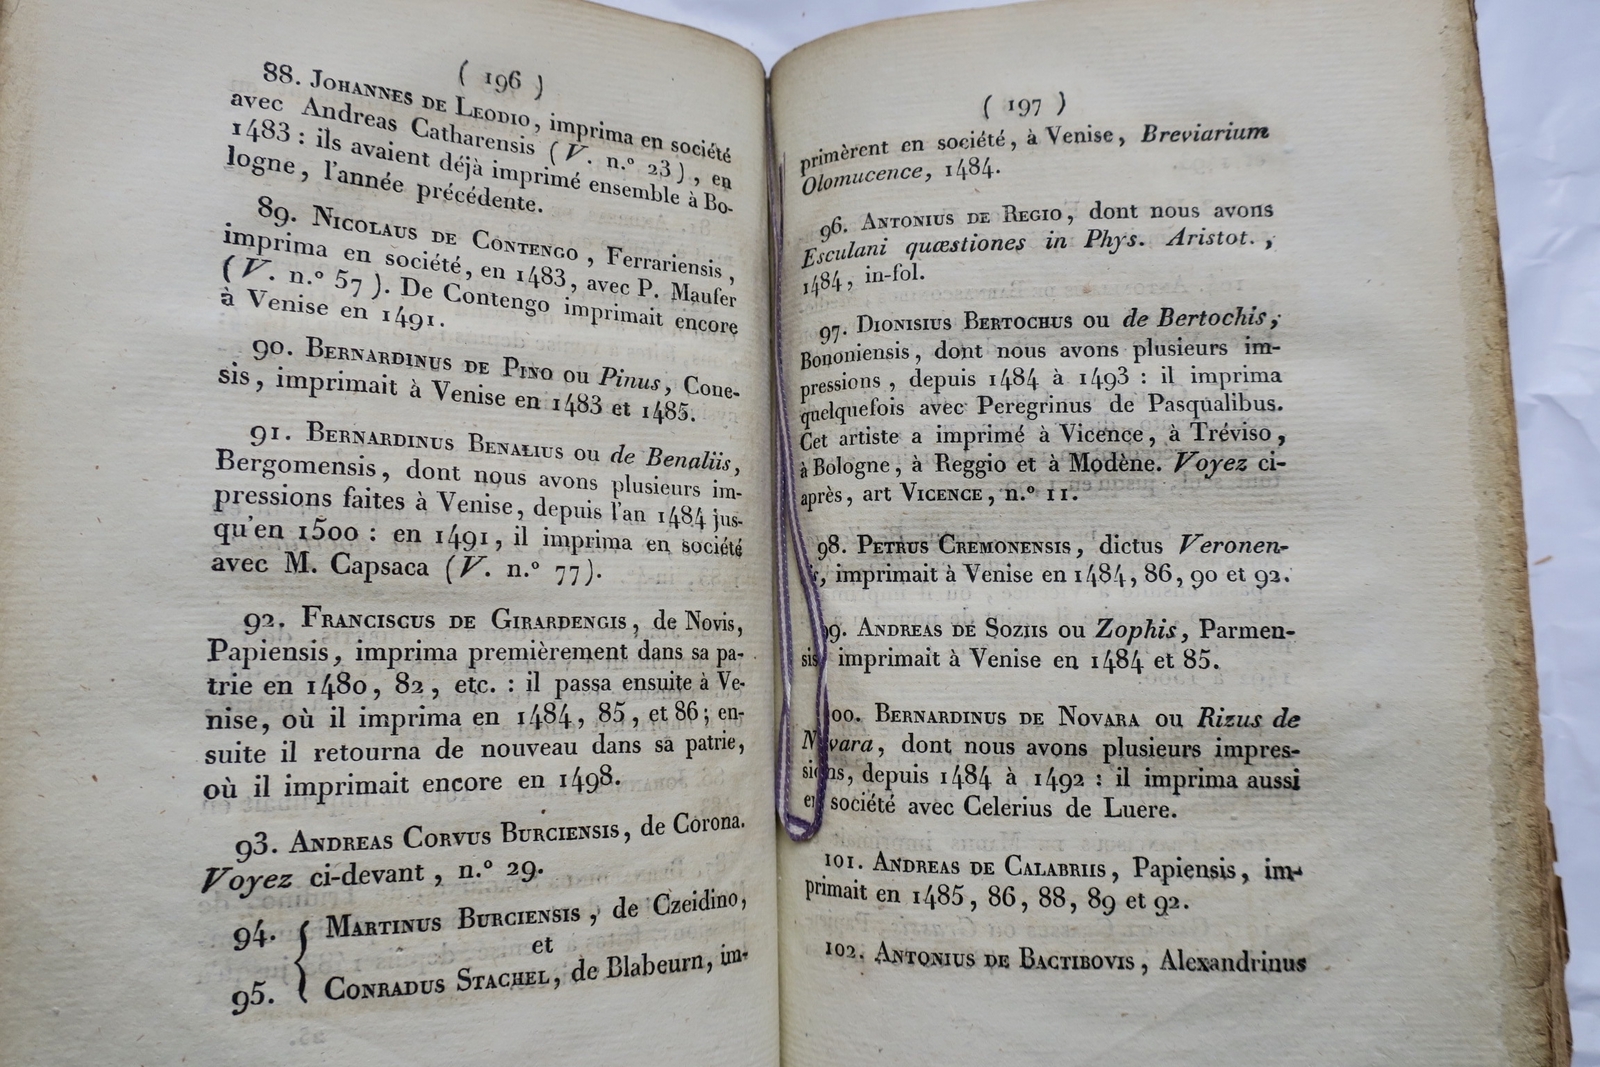 ( 196 )
88. JOHANNES DE LEODIO, imprima en société
avec Andreas Catharensis (V. n.º 23), en
1483 : ils avaient déjà imprimé ensemble à Bo-
logne, l'année précédente.
89. NICOLAUS DE CONTENGO, Ferrariensis,
imprima en société, en 1483, avec P. Maufer
(V. n.º 57). De Contengo imprimait encore
à Venise en 1491.
90. BERNARDINUS DE PINO ou Pinus, Cone-
sis, imprimait à Venise en 1483 et 1485.
91. BERNARDINUS BENALIUS ou de Benaliis,
Bergomensis, dont nous avons plusieurs im-
pressions faites à Venise, depuis l'an 1484 jus-
qu'en 1500 : en 1491, il imprima en société
avec M. Capsaca (V. n.º 77).
92. FRANCISCUS DE GIRARDENGIS, de Novis,
Papiensis, imprima premièrement dans sa pa-
trie en 1480, 82, etc. : il passa ensuite à Ve-
nise, où il imprima en 1484, 85, et 86 ; en-
suite il retourna de nouveau dans sa patrie,
où il imprimait encore en 1498.
93. ANDREAS CORVUS BURCIENSIS, de Corona.
Voyez ci-devant, n.º 29.
94. { MARTINUS BURCIENSIS, de Czeidino,
et
95. CONRADUS STACHEL, de Blabeurn, im-
( 197 )
primèrent en société, à Venise, Breviarium
Olomucence, 1484.
96. ANTONIUS DE REGIO, dont nous avons
Esculani quæstiones in Phys. Aristot.,
1484, in-fol.
97. DIONISIUS BERTOCHUS ou de Bertochis,
Bononiensis, dont nous avons plusieurs im-
pressions, depuis 1484 à 1493 : il imprima
quelquefois avec Peregrinus de Pasqualibus.
Cet artiste a imprimé à Vicence, à Tréviso,
à Bologne, à Reggio et à Modène. Voyez ci-
après, art VICENCE, n.º 11.
98. PETRUS CREMONENSIS, dictus Veronen-
imprimait à Venise en 1484, 86, 90 et 92.
99. ANDREAS DE SOZIIS ou Zophis, Parmen-
sis imprimait à Venise en 1484 et 85.
100. BERNARDINUS DE NOVARA ou Rizus de
Novara, dont nous avons plusieurs impres-
sions, depuis 1484 à 1492 : il imprima aussi
en société avec Celerius de Luere.
101. ANDREAS DE CALABRIIS, Papiensis, im-
primait en 1485, 86, 88, 89 et 92.
102. ANTONIUS DE BACTIBOVIS, Alexandrinus